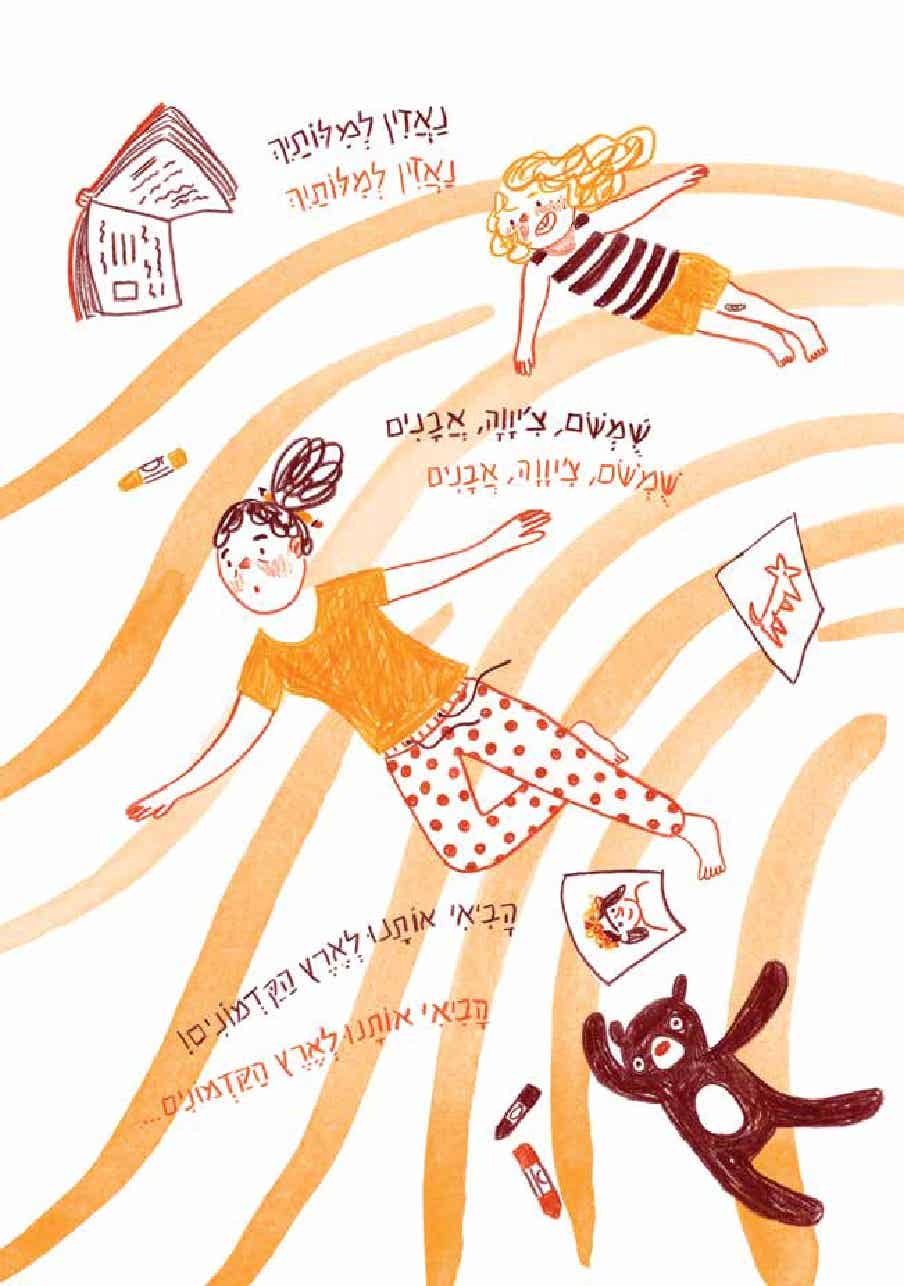 נַאֲזִין לְמִלּוֹתַיִךְ
נַאֲזִין לְמִלּוֹתַיִךְ
שֻׁמְשֹׁם, צִ׳יוָוָה, אֲבָנִים
שֻׁמְשֹׁם, צִ׳יוָוָה, אֲבָנִים
הָבִיאִי אוֹתָנוּ לְאֶרֶץ הַקַּדְמוֹנִים!
הָבִיאִי אוֹתָנוּ לְאֶרֶץ הַקַּדְמוֹנִים...